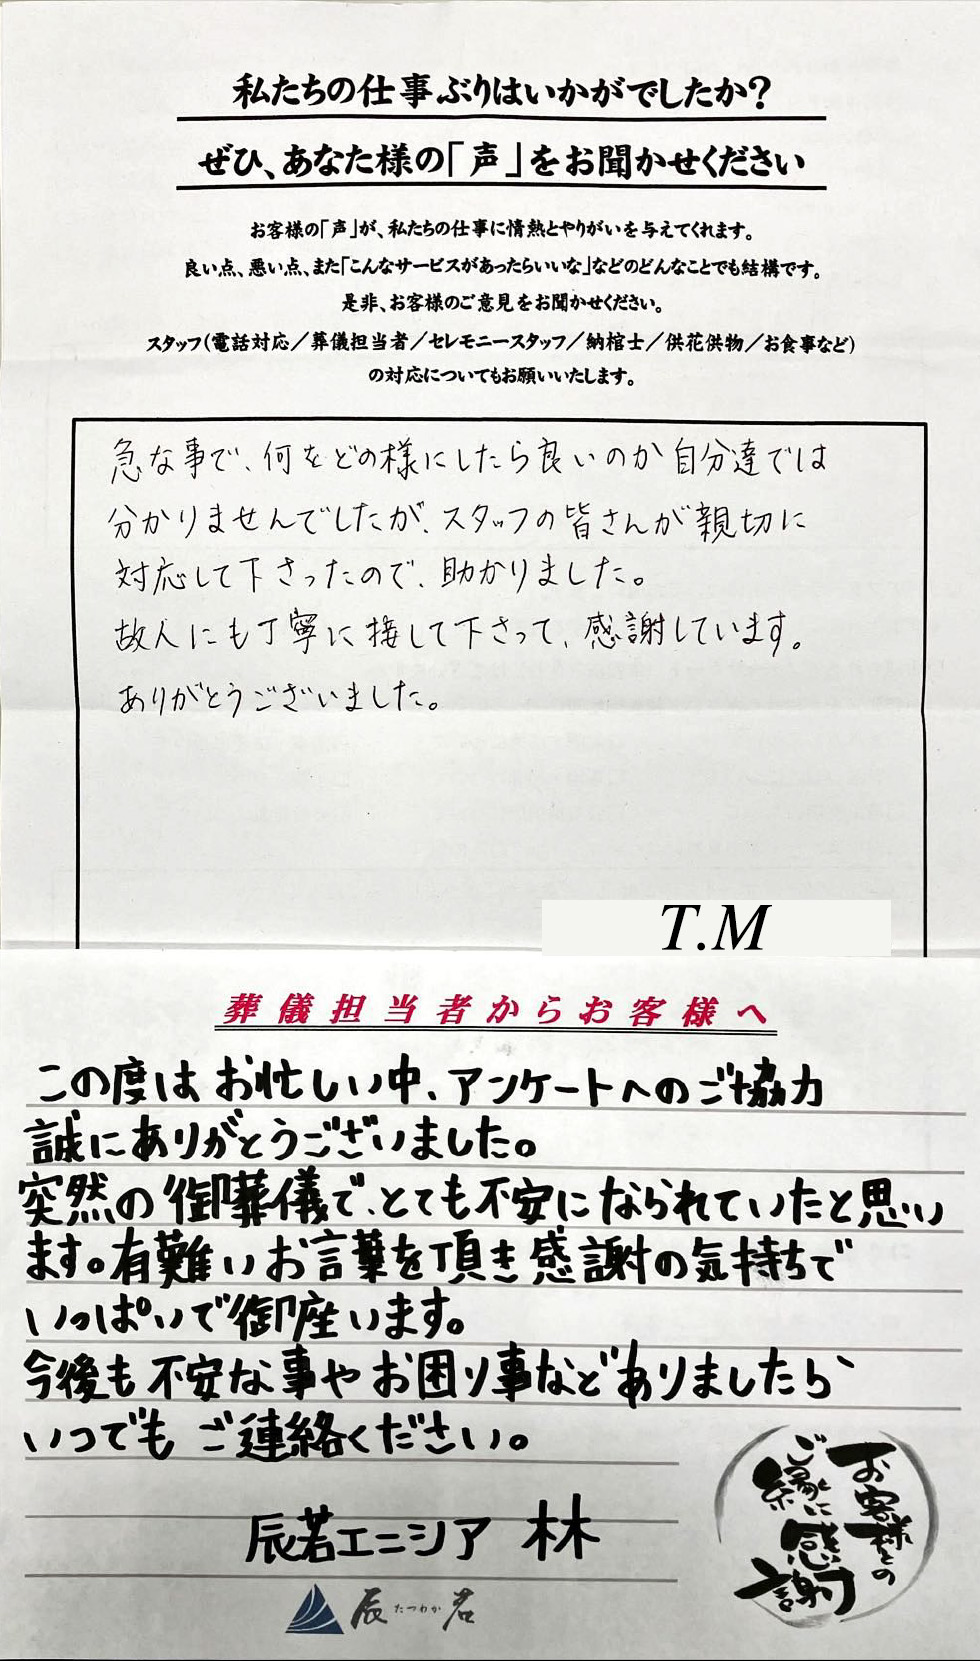 私たちの仕事ぶりはいかがでしたか?
ぜひ、あなた様の「声」をお聞かせください
お客様の「声」が、私たちの仕事に情熱とやりがいを与えてくれます。
良い点、悪い点、また「こんなサービスがあったらいいな」などのどんなことでも結構です。
是非、お客様のご意見をお聞かせください。
スタッフ(電話対応／葬儀担当者／セレモニースタッフ／納棺士／供花供物／お食事など)
の対応についてもお願いいたします。
急な事で、何をどの様にしたら良いのか自分達では
分かりませんでしたが、スタッフの皆さんが親切に
対応して下さったので、助かりました。
故人にも丁寧に接して下さって、感謝しています。
ありがとうございました。
T.M
葬儀担当者からお客様へ
この度はお忙しい中、アンケートへのご協力
誠にありがとうございました。
突然の御葬儀で、とても不安になられていたと思い
ます。有難いお言葉を頂き感謝の気持ちで
いっぱいで御座います。
今後も不安な事やお困り事などありましたら、
いつでもご連絡ください。
辰若エニシア 林
辰若
たつわか
お客様との
ご縁に
感謝